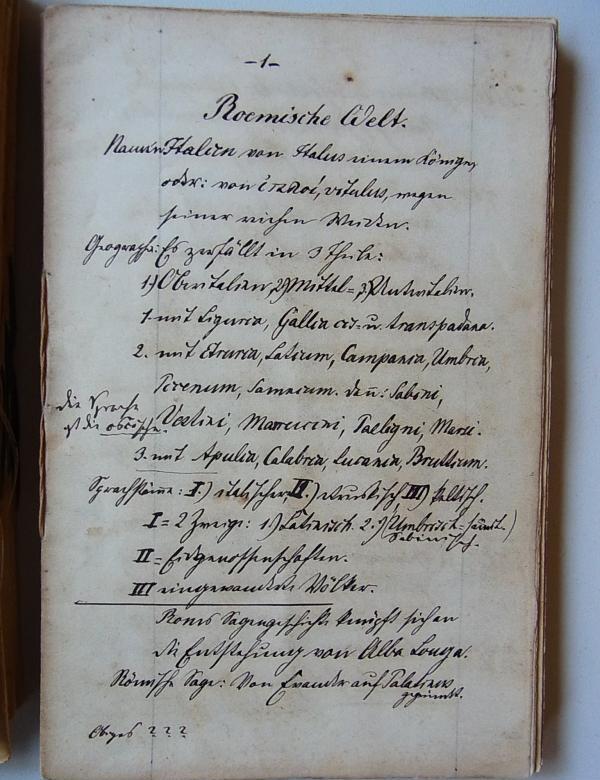 -1-
Roemische Welt.
Namen Italien von Italus einem Könige,
oder: von ἰταλοί, vitulus, wegen
seiner reichen Weiden.
Geographie: Es zerfällt in 3 Theile:
1) Oberitalien, 2) Mittel= 3) Unteritalien.
1. mit Liguria, Gallia cis= u. transpadana.
2. mit Etruria, Latium, Campania, Umbria,
Picenum, Samnium. dann: Sabini,
die Sprache
ist die oskische.
Vestini, Marrucini, Paeligni, Marsi.
3. mit Apulia, Calabria, Lucania, Bruttium.
Sprachstämme: I.) italischer II.) etruskisch III) keltisch.
I = 2 Zweige: 1.) Lateinisch. 2.) Umbrisch-samnit.)
Sabinisch.
II = Eidgenossenschaften.
III eingewanderte Völker.
Roms Sagengeschichte knüpft sich an
die Entstehung von Alba Longa.
Römische Sage: Von Evander auf Palatinus
gegründet.
? ? ?